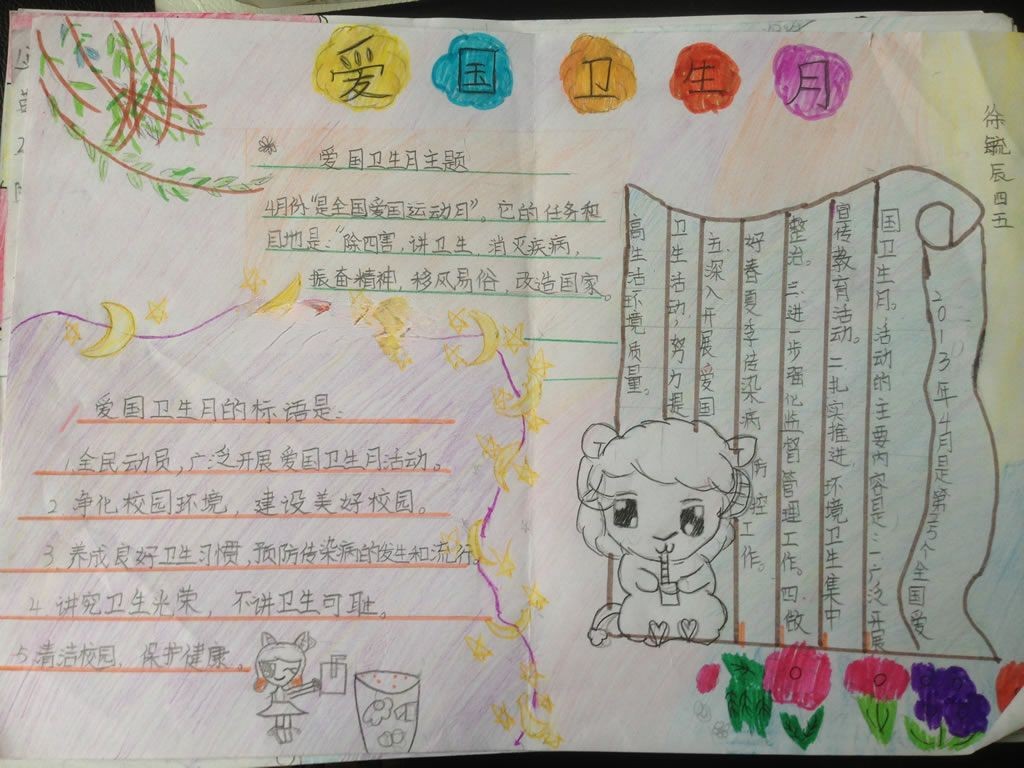 爱国卫生月
徐毓辰四五
爱国卫生月主题
4月份"是全国爱国运动月"。它的任务和
目地是："除四害，讲卫生，消灭疾病，
振奋精神，移风易俗，改造国家。
2013年4月是第25个全国爱
国卫生月。活动的主要内容是：一广泛开展
宣传教育活动。二扎实推进，环境卫生集中
整治。三进一步强化监督管理工作。四做
好春夏季传染病防控工作。
五深入开展爱国
卫生活动，努力提
高生活环境质量。
爱国卫生月的标语是：
1.全民动员，广泛开展爱国卫生月活动。
2 净化校园环境，建设美好校园。
3.养成良好卫生习惯，预防传染病的发生和流行。
4.讲究卫生光荣，不讲卫生可耻。
5.清洁校园，保护健康。